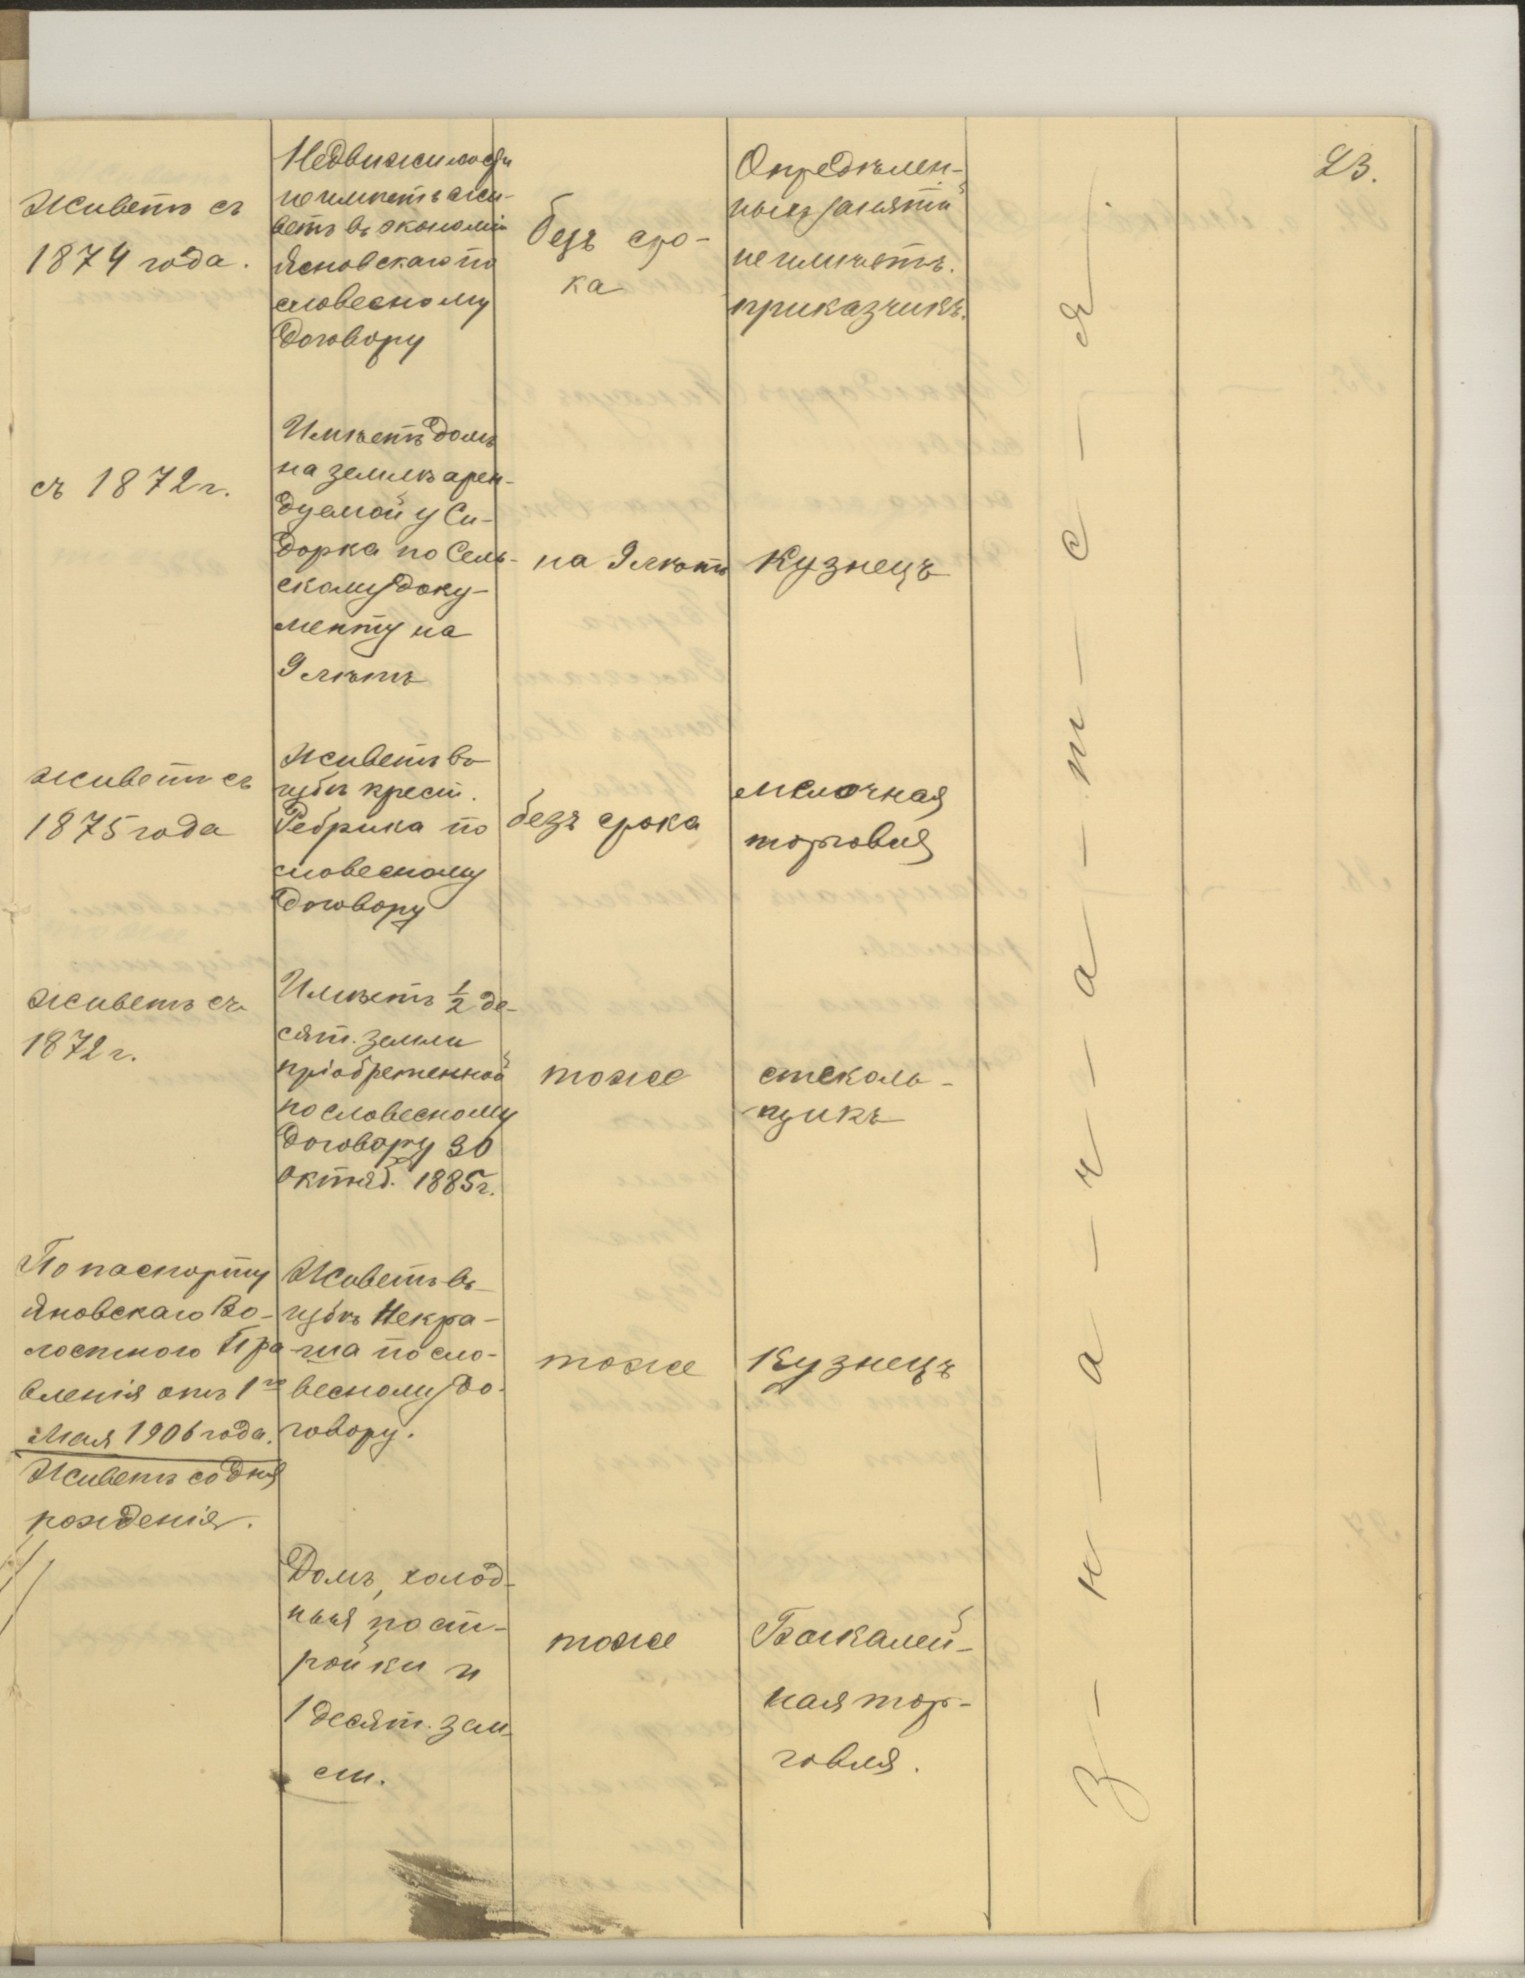 23.
Живетъ съ
1874 года.
Недвижимости
не имѣетъ а жи-
ветъ въ экономіи
Ясновскаго по
словесному
договору
безъ сро-
ка
Опредѣлен-
ныхъ занятій
не имѣетъ.
приказчикъ.
съ 1872 г.
Имѣетъ домъ
на землѣ арен-
дуемой у Си-
дорка по Сель-
скому доку-
менту на
9 лѣтъ
на 9 лѣтъ
Кузнецъ
живетъ съ
1875 года
Живетъ въ
избѣ крест.
Ребрика по
словесному
договору
безъ срока
мелочная
торговля
живетъ съ
1872 г.
Имѣетъ ½ де-
сят. земли
пріобретенной
по словесному
договору 30
октяб. 1885 г.
тоже
стеколь-
щикъ
По паспорту
Яновскаго Во-
лостного Пра
вленія отъ 1го
Мая 1906 года.
Живетъ со дня
рожденія.
Живетъ въ
избѣ Некра-
ша по сло-
весному до-
говору.
тоже
Кузнецъ
Домъ, холод-
ныя пост-
ройки и
1 десят. зем-
ли.
тоже
Бакалей-
ная тор-
говля.
З-н-а-ч-а-т-с-я.